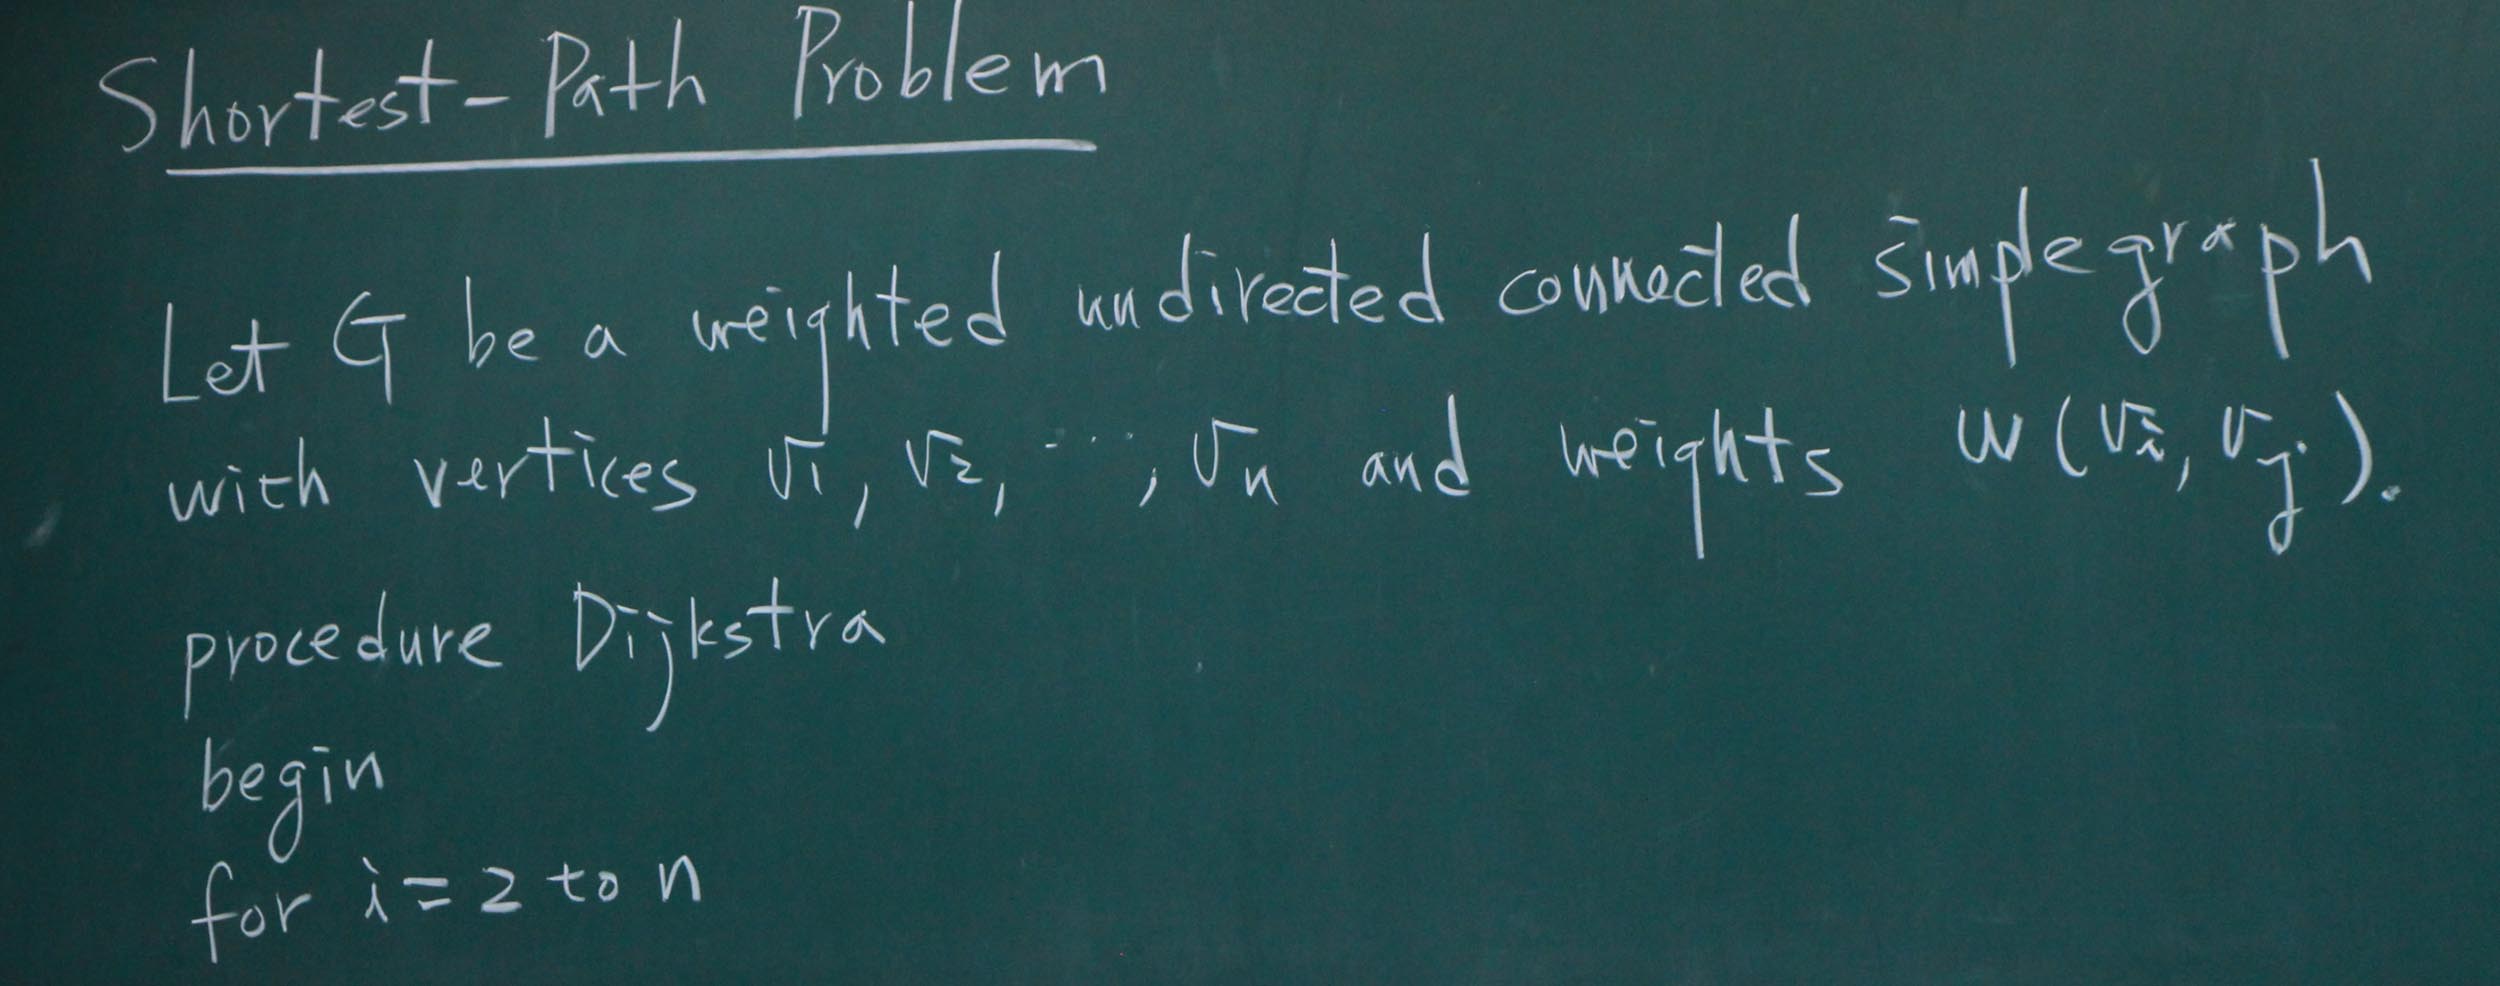 Shortest-Path Problem
Let G be a weighted undirected connected simple graph
with vertices v₁, v₂, ..., vₙ and weights w(vᵢ, vⱼ).
procedure Dijkstra
begin
for i = 2 to n